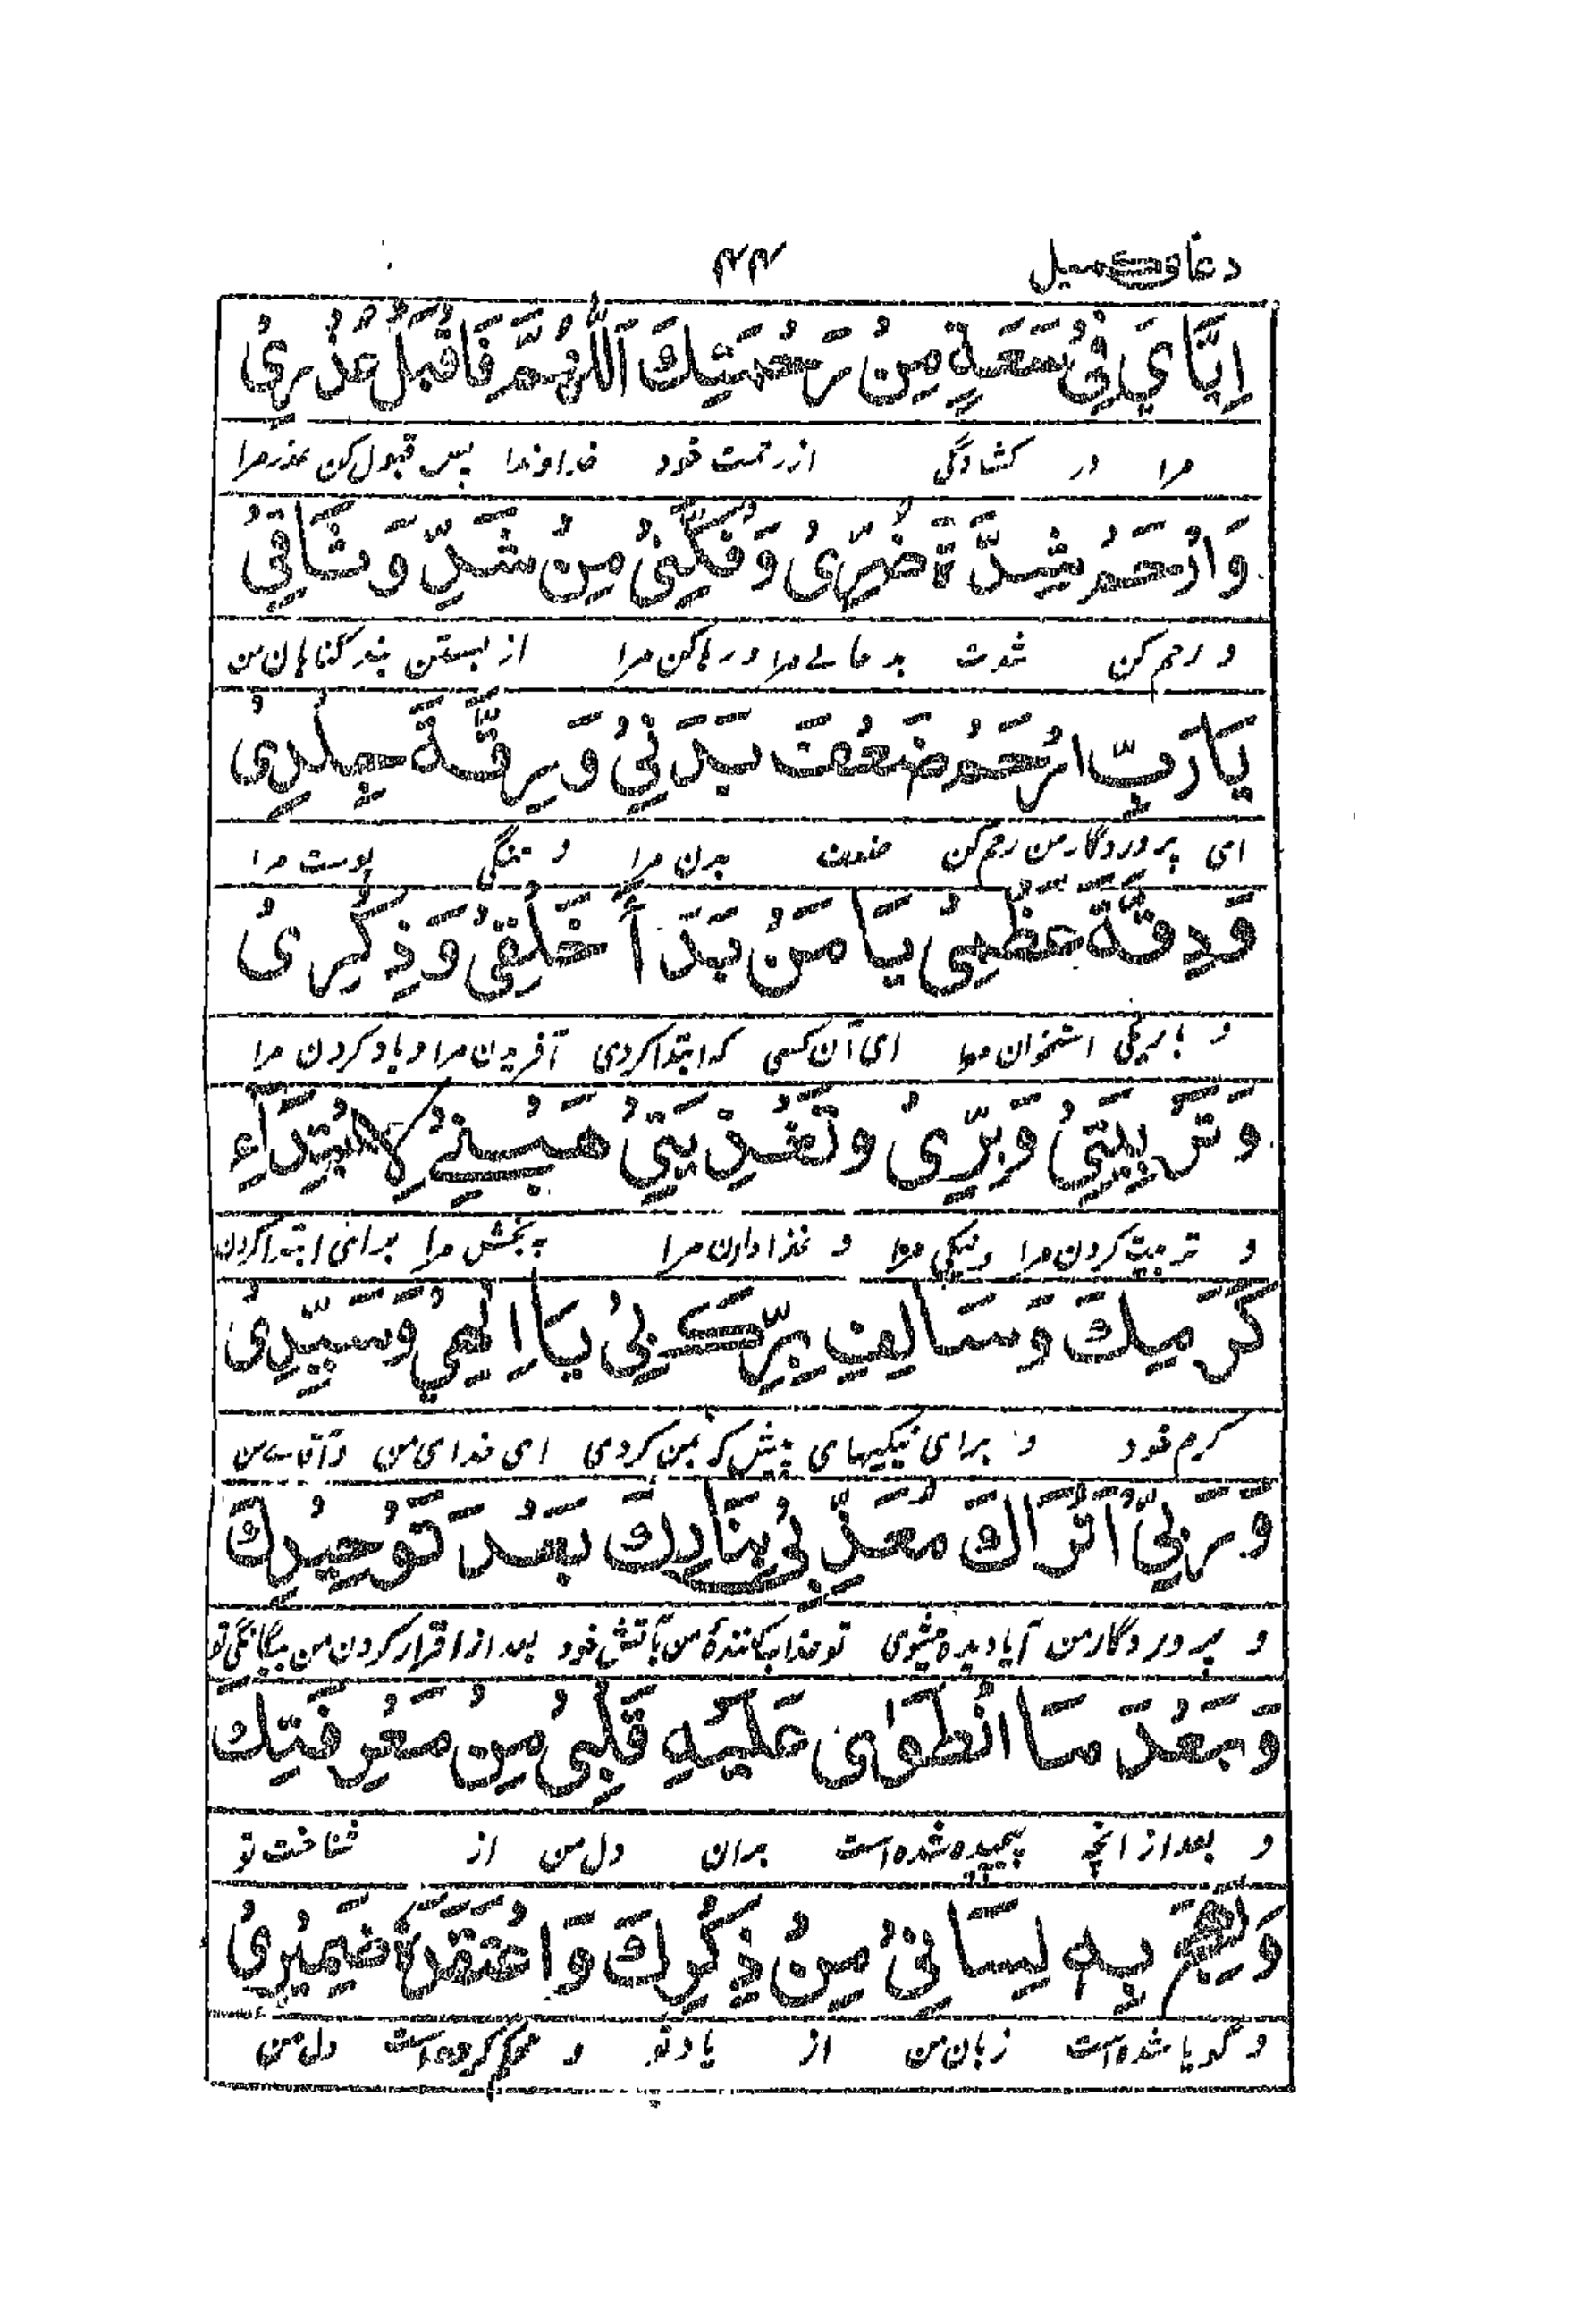 دعائ کمیل ۴۴
اِیَّایَ فِیْ سَعَةٍ مِنْ رَحْمَتِكَ اَللّٰهُمَّ فَاقْبَلْ عُذْرِیْ
مرا در کشادگی از رحمت خود خداوندا پس قبول کن عذر مرا
وَارْحَمْ شِدَّةَ ضُرِّیْ وَفُكَّنِیْ مِنْ شَدِّ وَثَاقِیْ
و رحم کن شدت بد حالے مرا و رها کن مرا از بستن بند گناهان من
یَارَبِّ ارْحَمْ ضَعْفَ بَدَنِیْ وَرِقَّةَ جِلْدِیْ
ای پروردگار من رحم کن ضعف بدن مرا و تنگی پوست مرا
وَدِقَّةَ عَظْمِیْ یَا مَنْ بَدَأَ خَلْقِیْ وَذِكْرِیْ
و باریکی استخوان مرا ای آن کسی که ابتدا کردی آفریدن مرا و یاد کردن مرا
وَتَرْبِیَتِیْ وَبِرِّیْ وَتَغْذِیَتِیْ هَبْنِیْ لِابْتِدَآءِ
و تربیت کردن مرا و نیکی مرا و غذا دادن مرا به بخش مرا برای ابتدا کردن
كَرَمِكَ وَسَالِفِ بِرِّكَ بِیْ یَا اِلٰهِیْ وَسَیِّدِیْ
کرم خود و برای نیکیهای پیش که بمن کردی ای خدای من و آقاے من
وَرَبِّیْ اَتُرَاكَ مُعَذِّبِیْ بِنَارِكَ بَعْدَ تَوْحِیْدِكَ
و پروردگار من آیا دیده میشوی تو عذاب کنندۀ من بآتش خود بعد از اقرار کردن من بیگانگی تو
وَبَعْدَ مَا انْطَوٰی عَلَیْهِ قَلْبِیْ مِنْ مَعْرِفَتِكَ
و بعد از انچه پیچیده شده است بران دل من از شناخت تو
وَلَهِجَ بِهٖ لِسَانِیْ مِنْ ذِكْرِكَ وَاعْتَقَدَهٗ ضَمِیْرِیْ
و گویا شده است زبان من از یاد تو و محکم کرده است دل من